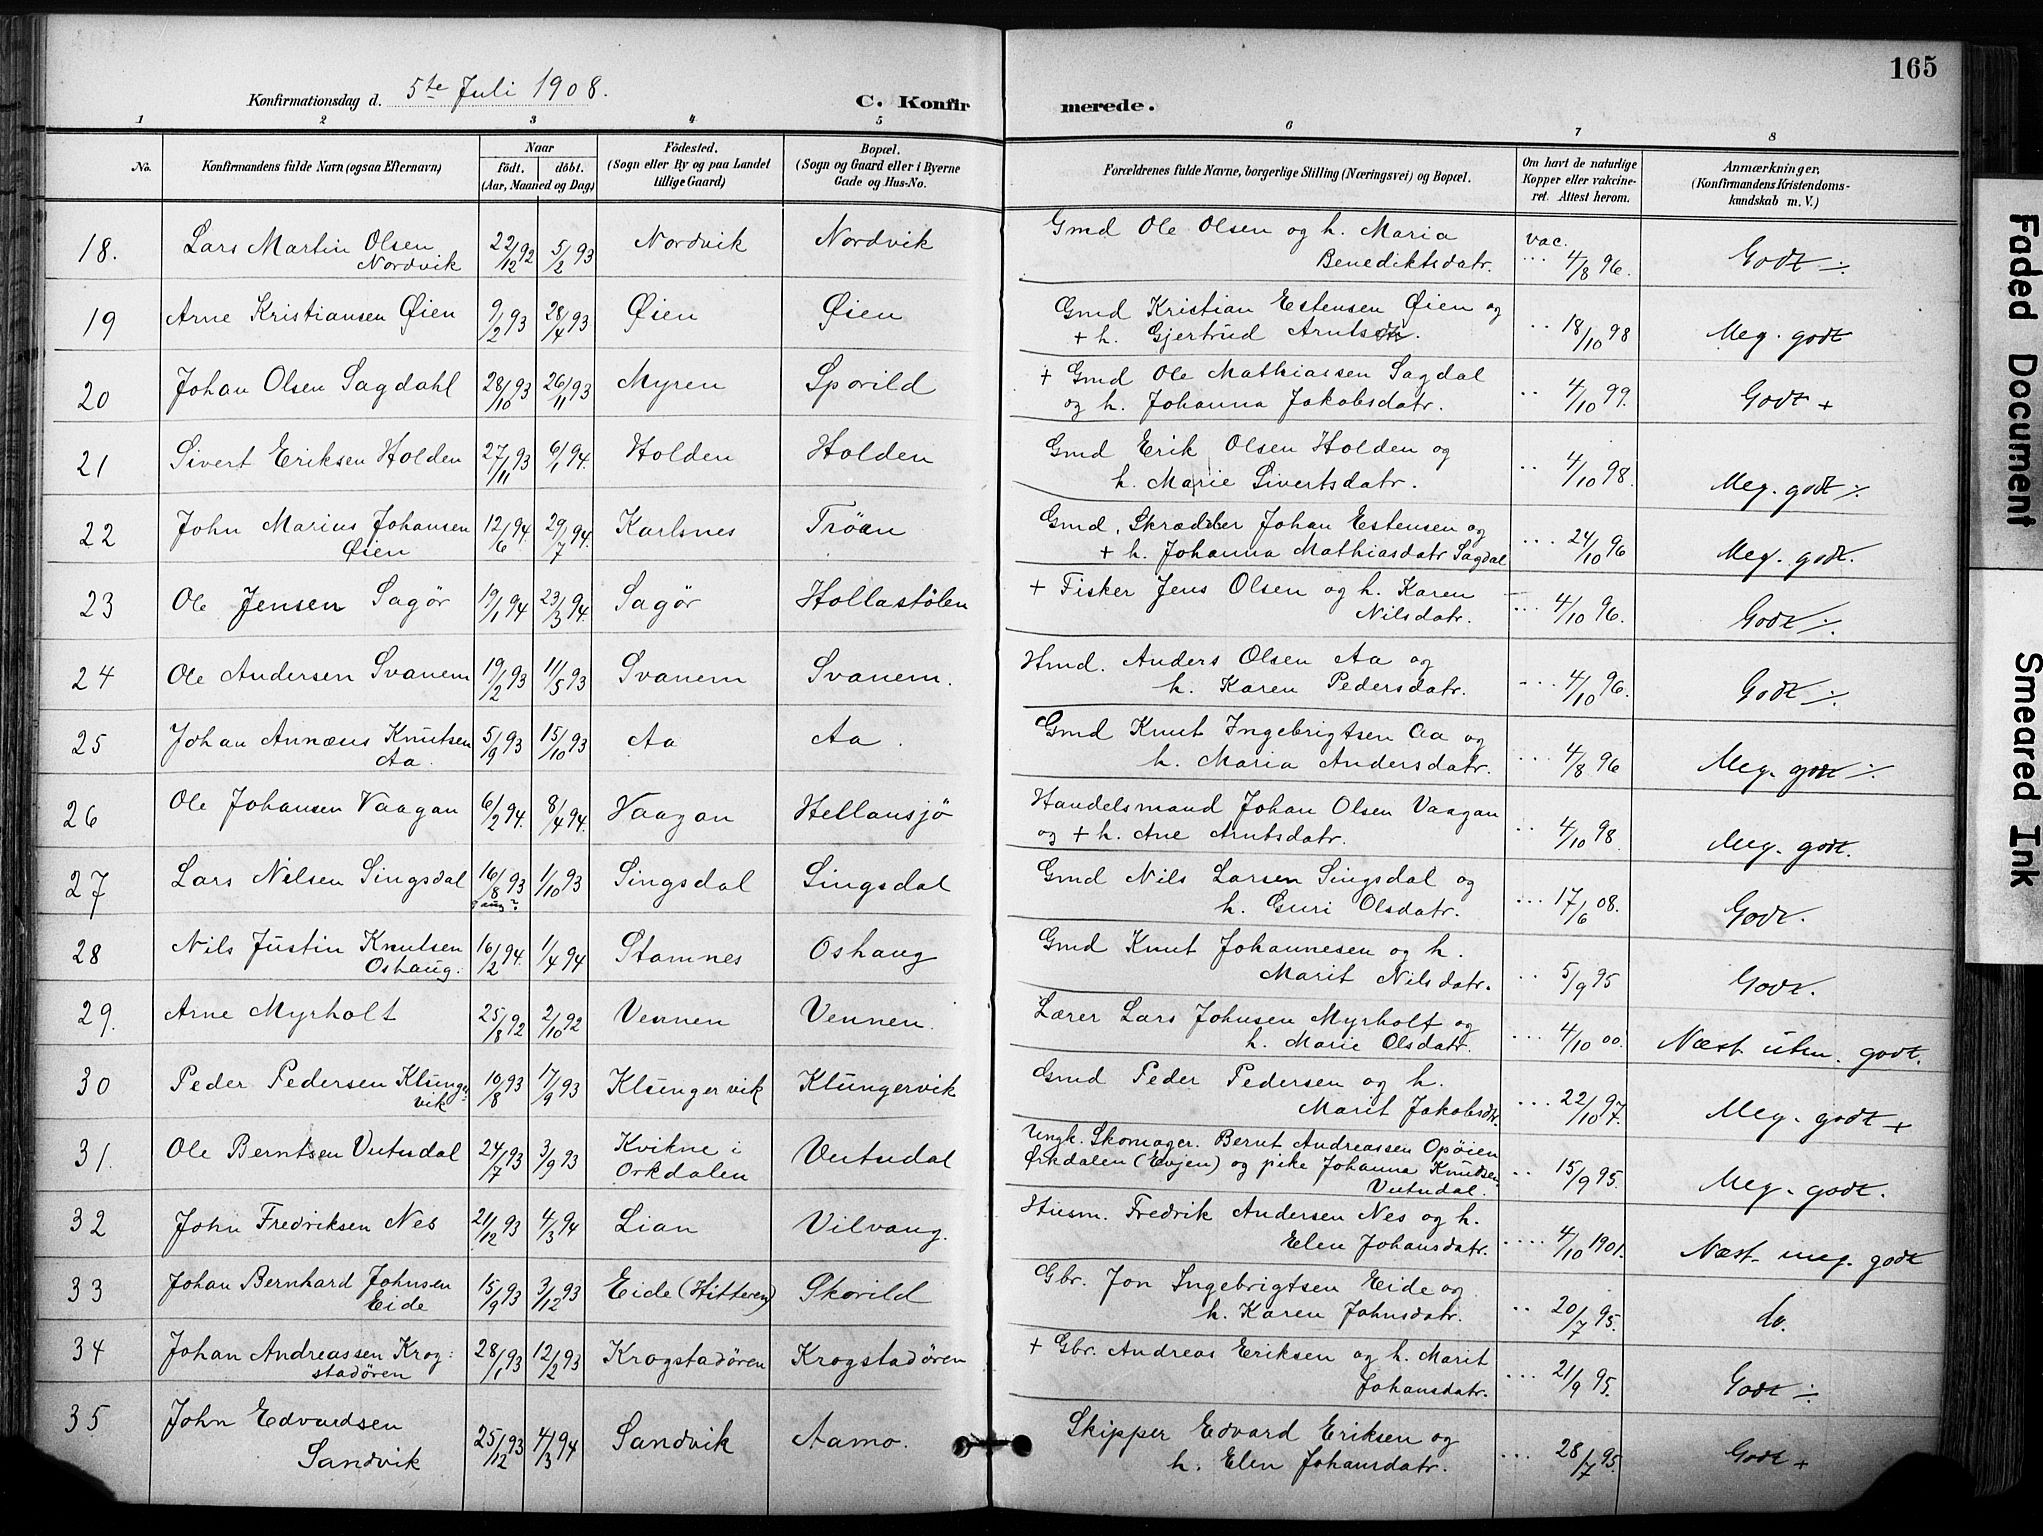 165
Konfirmationsdag d. 5te Juli 1908.
C. Konfir merede.
1 2 3 4 5 6 7 8
No.
Konfirmandens fulde Navn (ogsaa Efternavn)
Naar
födt. döbt.
(Aar, Maaned og Dag)
Födested.
(Sogn eller By og paa Landet
tillige Gaard)
Bopæl.
(Sogn og Gaard eller i Byerne
Gade og Hus-No.
Forældrenes fulde Navne, borgerlige Stilling (Næringsvei) og Bopæl.
Om havt de naturlige
Kopper eller vakcine-
ret. Attest herom.
Anmærkninger,
(Konfirmandens Kristendoms-
kundskab m. V.)
18. Lars Martin Olsen 22/12 92 5/2 93 Nordvik Nordvik Gmd Ole Olsen og h. Maria vac.
Nordvik Benediktsdatr. 4/8 96. Godt ./.
19 Arne Kristiansen Øien 9/2 93 28/4 93 Øien Øien Gmd Kristian Estensen Øien og
+ h. Gjertrud Arntsdtr. 18/10 98 Meg. godt
20 Johan Olsen Sagdahl 28/10 93 26/11 93 Myren Sporild + Gmd Ole Mathiassen Sagdal
og h. Johanna Jakobsdatr. 4/10 99. Godt +
21 Sivert Eriksen Holden 27/11 93 6/1 94. Holden Holden Gmd Erik Olsen Holden og
h. Marie Sivertsdatr. 4/10 98. Meg. godt ./.
22 John Marius Johansen 12/6 94. 29/7 94. Karlsnes Trøan Gmd, Skrædder Johan Estensen og
Øien + h. Johanna Mathiasdatr Sagdal 24/10 96 Meg. godt.
23 Ole Jensen Sagør 19/1 94 23/3 94. Sagør Hollastölen + Fisker Jens Olsen og h. Karen
Nilsdatr. 4/10 96. Godt ./.
24 Ole Andersen Svanem 19/2 93 11/5 93 Svanem Svanem. Hmd. Anders Olsen Aa og
h. Karen Pedersdatr. 4/10 96. Godt ./.
25 Johan Annæus Knutsen 5/9 93 15/10 93 Aa Aa. Gmd Knut Ingebrigtsen Aa og
Aa. h. Maria Andersdatr. 4/8 96 Meg. godt ./.
26 Ole Johansen Vaagan 6/2 94. 8/4 94. Vaagan Hellansjö Handelsmand Johan Olsen Vaagan
og + h. Ane Arntsdatr. 4/10 98. Meg. godt.
27 Lars Nilsen Singsdal 16/8 93 1/10 93 Singsdal Singsdal Gmd Nils Larsen Singsdal og
h. Guri Olsdatr. 17/6 08. Godt.
28 Nils Justin Knutsen 16/2 94. 1/4 94 Stamnes Oshaug Gmd Knut Johannesen og h.
Oshaug. Marit Nilsdatr. 5/9 95 Godt.
29. Arne Myrholt 25/8 92 2/10 92 Vennen Vennen. Lærer Lars Johnsen Myrholt og
h. Marie Olsdatr. 4/10 00. Næst utm. godt.
30 Peder Pedersen Klunger- 10/8 93 17/9 93 Klungervik Klungervik Gmd Peder Pedersen og h.
vik Marit Jakobsdtr. 22/10 97. Meg. godt +
31. Ole Berntsen Vutudal 24/7 93 3/9 93 Kvikne i Vutudal Ungk. Skomager. Bernt Andreassen Opøien
Orkdalen Orkdalen (Evjen) og pike Johanna Knudsen 15/9 95. Meg. godt.
Vutudal.
32 John Fredriksen Nes 21/12 93 4/3 94 Lian Vilvang. Husm. Fredrik Andersen Nes og h.
Elen Johansdatr. 4/10 1901. Næst meg. godt
33 Johan Bernhard Johnsen 15/9 93 3/12 93 Eide (Hitteren) Skorild Gbr. Jon Ingebrigtsen Eide og
Eide h. Karen Johnsdatr. 20/7 95. do.
34 Johan Andreassen Krog: 28/1 93 12/2 93 Krogstadören Krogstadören + Gbr. Andreas Eriksen og h. Marit
stadören Johansdatr. 21/9 95. Godt ./.
35 John Edvardsen 25/12 93 4/3 94 Sandvik Aamo. Skipper Edvard Eriksen og
Sandvik h. Elen Johansdatr. 28/7 95. Godt +
Faded Document
Smeared Ink